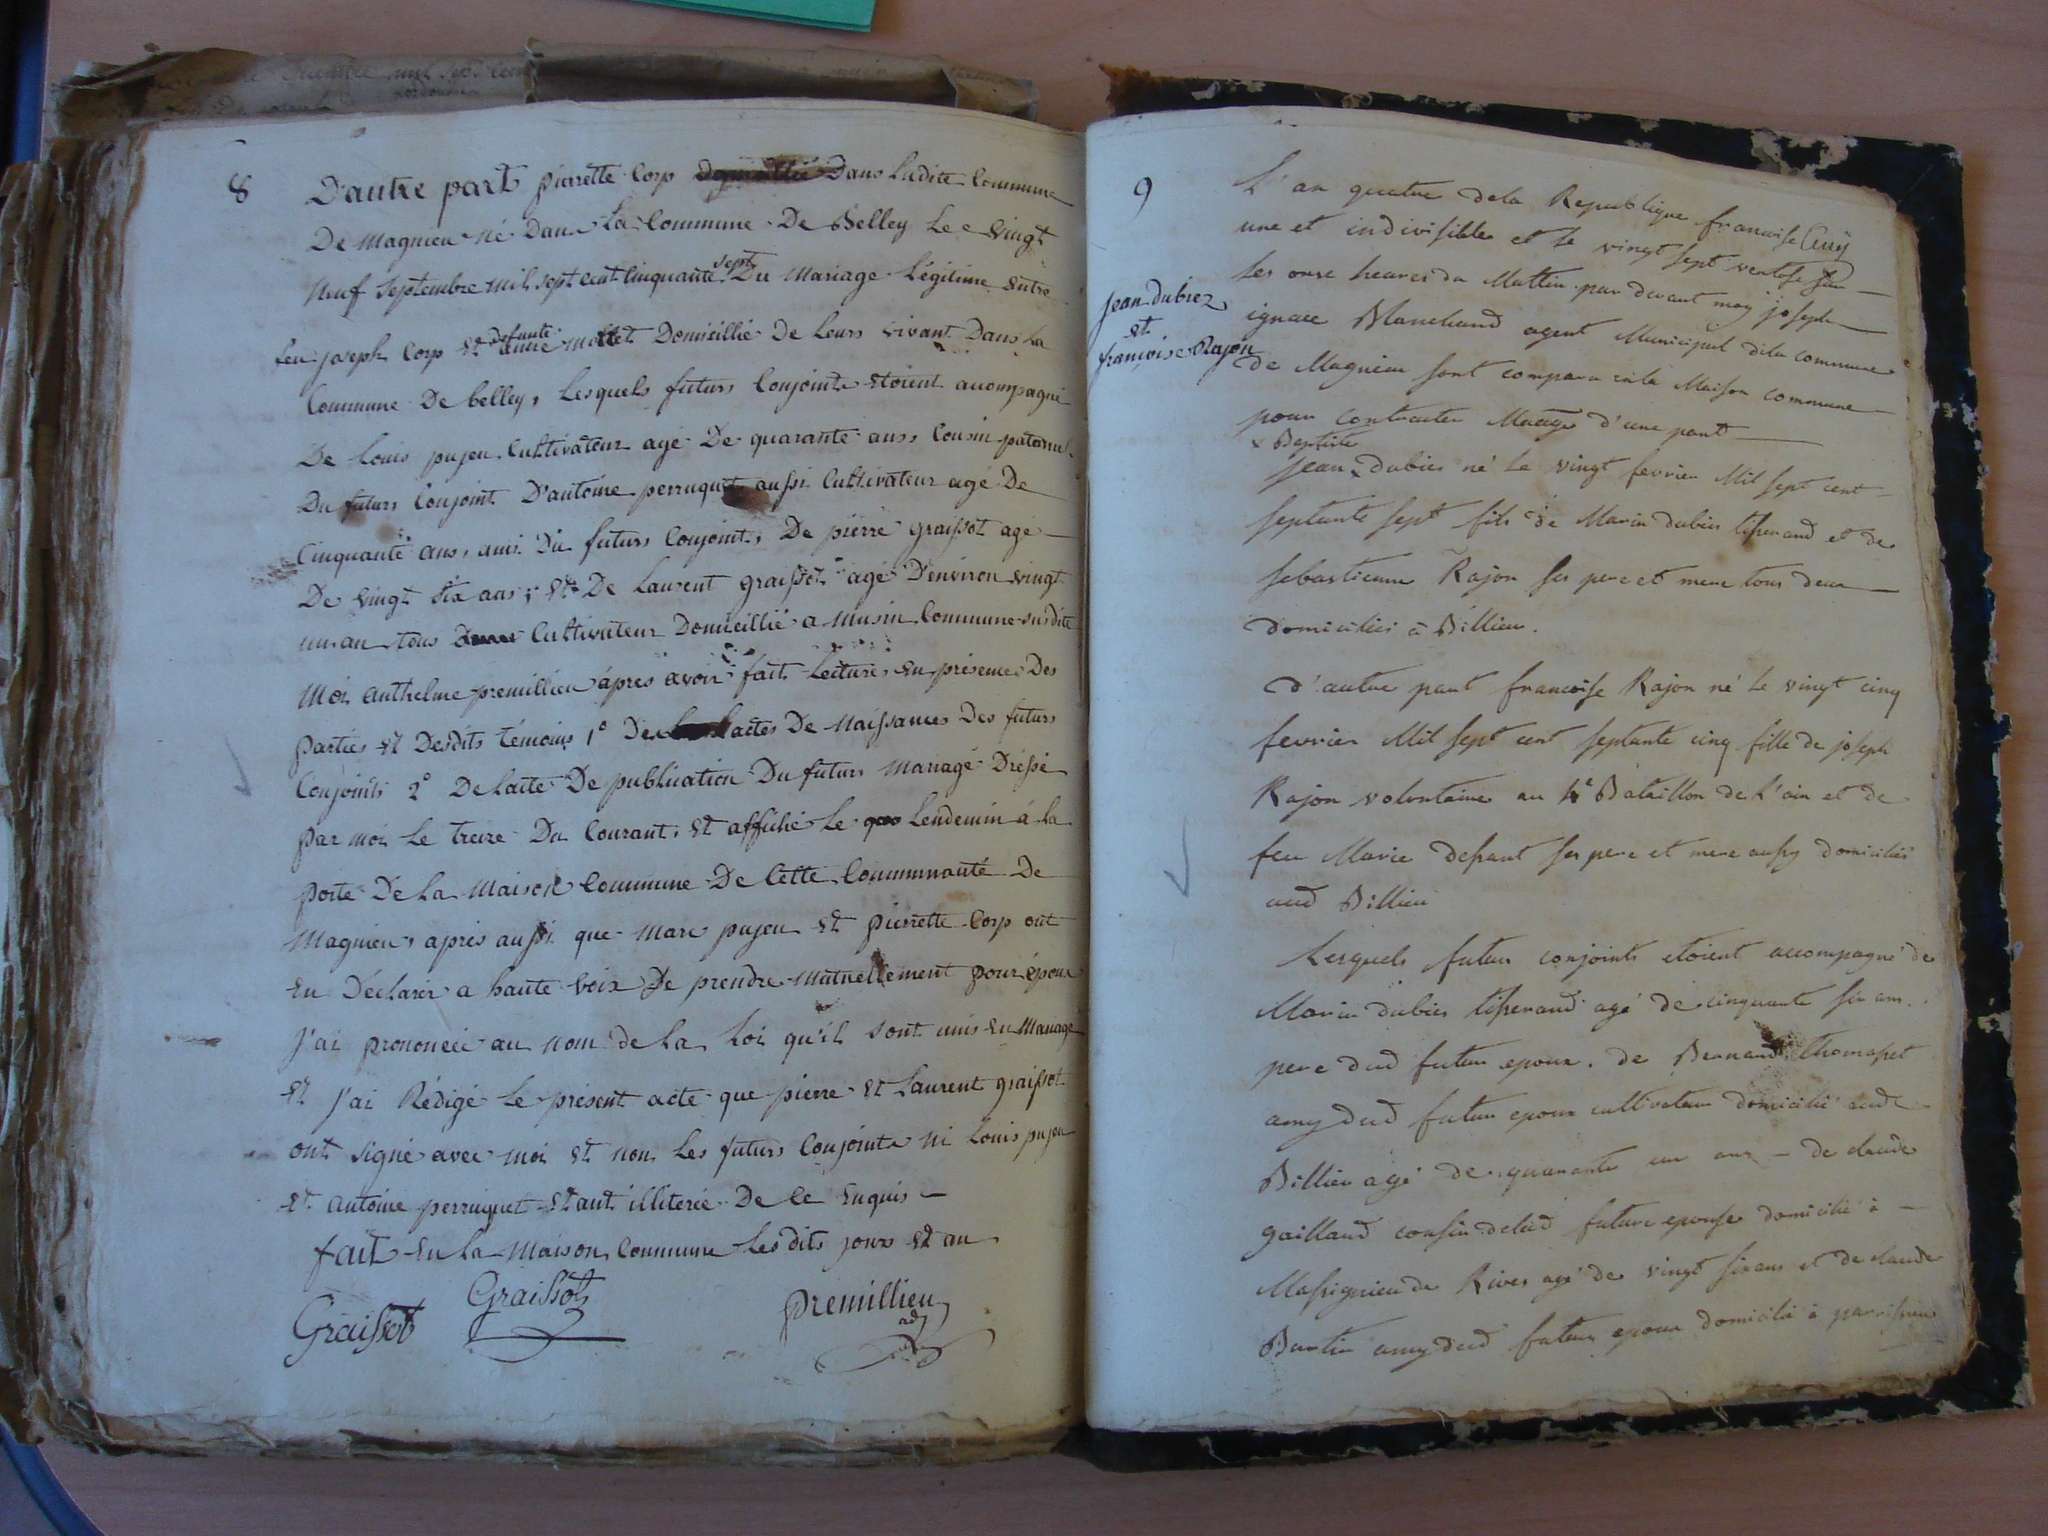 8
D'autre part pierrette Corp Domicillié Dans Ladite Commune
De Magnieu né Dans La Commune De Belley Le Vingt
Neuf Septembre mil sept cent Cinquante sept Du Mariage Légitime Entre
feu joseph Corp Et defunte anne mollet Domicillié De Leurs vivant Dans La
Commune De belley, Lesquels futurs Conjoints Etoient accompagné
De Louis pujeu Cultivateur agé De quarante ans Cousin paternel
Du futurs Conjoint D'antoine perruquet aussi Cultivateur agé De
Cinquante ans, ami Du futurs Conjoint, De pierre graissot agé
De Vingt Six ans, Et De Laurent graissot agé D'environ vingt
un an tous Cultivateur Domicillié a Musin Commune susdite
Moi anthelme premillieu après avoir fait Lecture En présence Des
parties Et Desdits témoins 1° De actes De Naissances Des futurs
Conjoints 2° De Lacte De publication Du futurs Mariage Dressé
par moi Le treize Du Courant, Et affiché Le Lendemin à la
porte De La Maison Commune De Cette Communauté De
Magnieu, après aussi que marc pujeu Et pierrette Corp ont
Eu Déclarér a haute Voix De prendre mutuellement pour époux
J'ai prononcé au nom de La Loi qu'il sont unis En Mariage
Et J'ai Rédigé Le présent acte que pierre Et Laurent graissot
ont signé avec moi Et non Les futurs Conjoints Ni Louis pujeu
Et antoine perruquet Etant illiterée De Ce Enquis
fait En La Maison Commune Lesdits jours Et an
Graissot Graissot premillieu
9
L'an quatre dela Republique francaise
une et indivisible et le vingt sept ventose sur
les onze heures du Mattin par devant moy joseph
jean dubiez
et
francoise Rajon
ignace Blanchard agent Municipal dela commune
de Magnieu sont comparu en la Maison commune
pour contracter Mariage d'une part
x Baptiste
jean x dubies né le vingt fevrier Mil sept cent
septante sept fils de Marin dubies tisserand et de
sebastienne Rajon ses pere et mere tous deux
domiciliés à Billieu.
d'autre part francoise Rajon né le vingt cinq
fevrier Mil sept cent septante cinq fille de joseph
Rajon volontaire au 4e Bataillon de l'ain et de
feu Marie ses pere et mere aussy domiciliés
aud Billieu
Lesquels futur conjoints etoient accompagné de
Marin dubies tisserand agé de cinquante six ans
pere dud futur epoux. de Bernard thomasset
amy dud futur epoux cultivateur domicilié aud
Billieu agé de quarante un ans - de claude
gaillard cousin delad future epouse domicilié à
Massignieu de Rives agé de vingt six ans et de claude
Burtin amy dud futur epoux domicilié à parrissieu